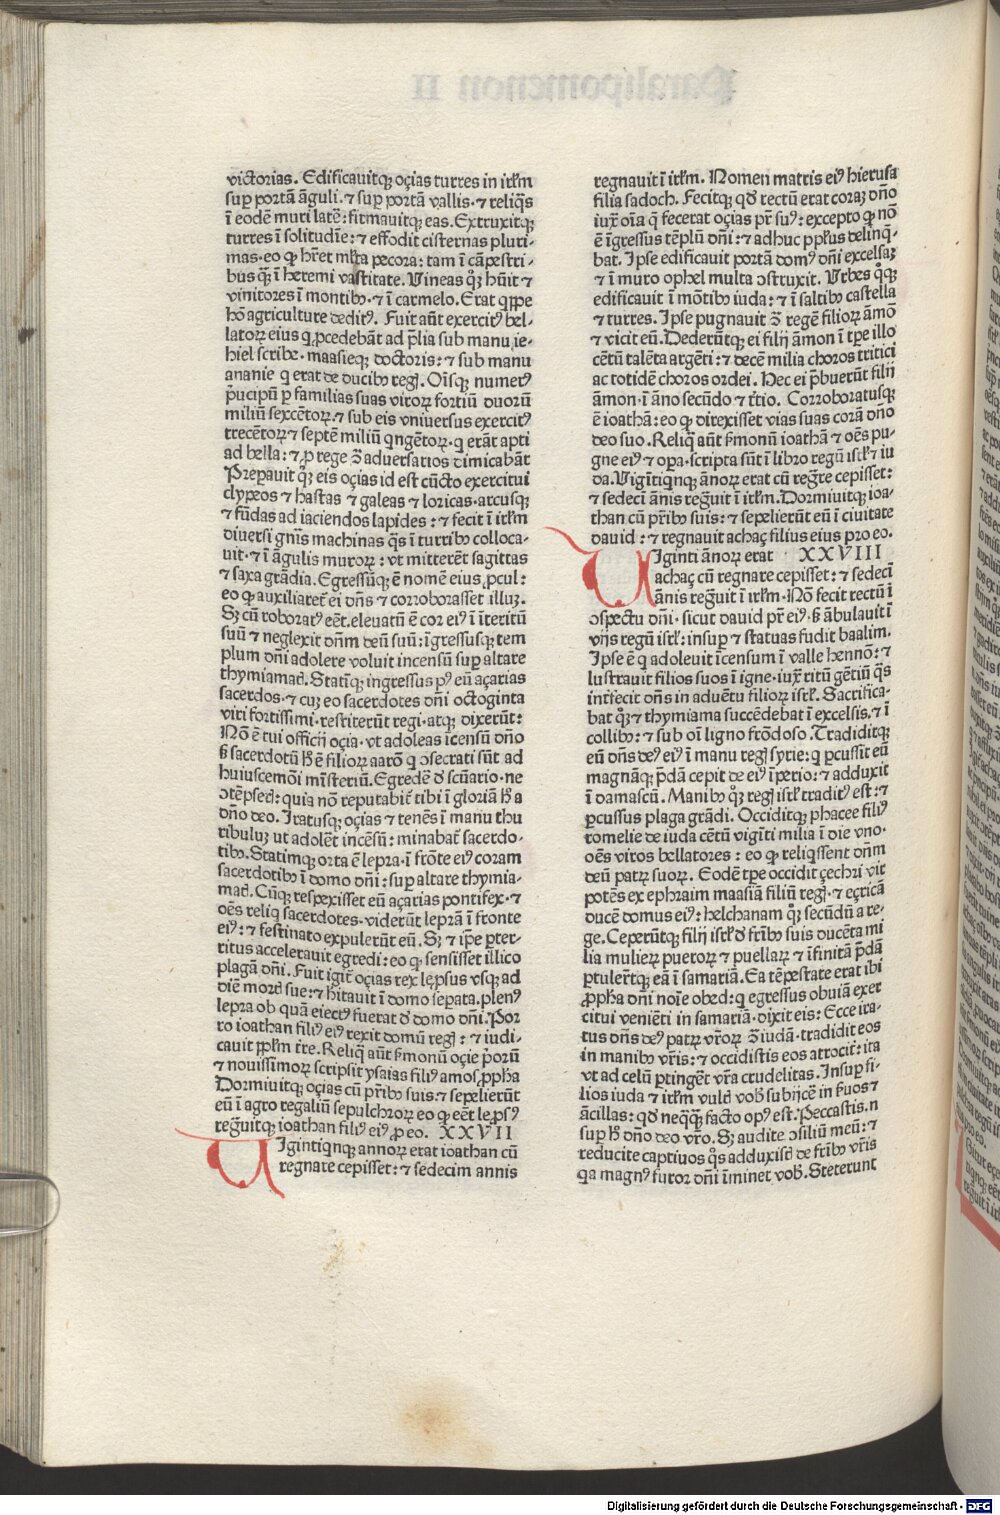 victorias. Edificauitqꝫ oçias turres in irl̄m
suꝑ portā āguli.⁊ suꝑ portā vallis.⁊ reliq̄s
ī eodē muri latē: firmauitqꝫ eas. Extruxitqꝫ
turres ī solitudīe:⁊ effodit cisternas pluri-
mas.eo ꝙ hr̄et ml̄ta pecora: tam ī cāpestri-
bus q̄ꝫ ī heremi vastitate. Vineas qꝫ hūit ⁊
vinitores ī montibꝰ.⁊ ī carmelo. Erat qꝑpe
hō agriculture deditꝰ. Fuit aūt exercitꝰ bel-
latoꝝ eius q ꝓcedebāt ad p̄lia sub manu ie-
hiel scribe. maasieqꝫ doctoris:⁊ sub manu
ananie q erat de ducibꝰ regꝭ. Oīsqꝫ numerꝰ
p̄ncipū ꝑ familias suas viroꝝ fortiū duorū
miliū sexcētoꝝ.⁊ sub eis vniuersus exercitꝰ
trecētoꝝ ⁊ septē miliū qngētoꝝ.q erāt apti
ad bella:⁊ ꝓ rege ꝯ̄ aduersarios dimicabāt
Prepauit qꝫ eis oçias id est cūcto exercitui
clypeos ⁊ hastas ⁊ galeas ⁊ loricas.arcusqꝫ
⁊ fūdas ad iaciendos lapides:⁊ fecit ī irl̄m
diuersi gn̄is machinas q̄s ī turribꝰ colloca-
uit.⁊ ī āgulis muroꝝ: vt mitterēt sagittas
⁊ saxa grādia. Egressūqꝫ ē nomē eius ꝓcul:
eo ꝙ auxiliaret̄ ei dn̄s ⁊ corroborasset illuꝫ.
Sꝫ cū roboratꝰ eēt.eleuatū ē cor eiꝰ ī īteritū
suū ⁊ neglexit dn̄m deū suū: īgressusqꝫ tem
plum dn̄i adolere voluit incensū suꝑ altare
thymiamaꝭ. Statīqꝫ ingressus pꝰ eū açarias
sacerdos.⁊ cuꝫ eo sacerdotes dn̄i octoginta
viri fortissimi.restiterūt regi.atqꝫ dixerūt:
Nō ē tui officij oçia.vt adoleas īcensū dn̄o
ẜ sacerdotū h̄ ē filioꝝ aarō q ꝯsecrati sūt ad
huiuscemōi mīsteriū. Egredē ꝺ scn̄ario.ne
ꝯtēpseꝭ: quia nō reputabit̄ tibi ī gloriā h̄ a
dn̄o deo. Iratusqꝫ oçias ⁊ tenēs ī manu thu
ribuluꝫ ut adolēt incēsū: minabat̄ sacerdo-
tibꝰ. Statimqꝫ orta ē lepra.ī frōte eiꝰ coram
sacerdotibꝰ ī domo dn̄i: suꝑ altare thymia-
maꝭ. Cūqꝫ respexisset eū açarias pontifex.⁊
oēs reliq sacerdotes.viderūt leprā ī fronte
eiꝰ:⁊ festinato expulerūt eū. Sꝫ ⁊ ip̄e ꝑter-
ritus accelerauit egredi: eo ꝙ sensisset illico
plagā dn̄i. Fuit igit̄ oçias rex lep̄sus vsqꝫ ad
diē morꝭ sue:⁊ h̄itauit ī domo seꝑata.plenꝰ
lepra ob quā eiectꝰ fuerat ꝺ domo dn̄i. Por
ro ioathan filiꝰ eiꝰ rexit domū regꝭ:⁊ iudi-
cauit ppl̄m tr̄e. Reliq̄ aūt ẜmonū oçie p̄orū
⁊ nouissimoꝝ scripsit ysaias filiꝰ amos ꝓpha
Dormiuitqꝫ oçias cū pr̄ibꝰ suis.⁊ sepelierūt
eū ī agro regaliū sepulchroꝝ eo ꝙ eēt lep̄sꝰ
regūitqꝫ ioathan filiꝰ eiꝰ ꝓ eo. XXVII
VIgintiqnqꝫ annoꝝ erat ioathan cū
regnare cepisset:⁊ sedecim annis
regnauit ī irl̄m. Nomen matris eiꝰ hierusa
filia sadoch. Fecitqꝫ qꝺ rectū erat coraꝫ dn̄o
iuxͣ oīa q̄ fecerat oçias pr̄ suꝰ: excepto ꝙ nō
ē īgressus tēplū dn̄i:⁊ adhuc ppl̄us delinq̄-
bat. Ipse edificauit portā domꝰ dn̄i excelsaꝫ
⁊ ī muro ophel multa ꝯstruxit. Vrbes qͦqꝫ
edificauit ī mōtibꝰ iuda:⁊ ī saltibꝰ castella
⁊ turres. Ipse pugnauit ꝯ̄ regē filioꝝ āmō
⁊ vicit eū. Dederūtqꝫ ei filij āmon ī tꝑe illo
cētū talēta argēti:⁊ decē milia choros tritici
ac totidē choros ordei. Hec ei p̄buerūt filij
āmon.ī āno secūdo ⁊ tr̄tio. Corroboratusqꝫ
ē ioathā: eo ꝙ direxisset vias suas corā dn̄o
deo suo. Reliq̄ aūt ẜmonū ioathā ⁊ oēs pu-
gne eiꝰ ⁊ oꝑa.scripta sūt ī libro regū isrl̄ ⁊ iu
da. Vigītiqnqꝫ ānoꝝ erat cū regr̄e cepisset:
⁊ sedecī ānis regūit ī irl̄m. Dormiuitqꝫ ioa-
than cū pr̄ibꝰ suis:⁊ sepelierūt eū ī ciuitate
dauid:⁊ regnauit achaç filius eius pro eo.
VIginti ānoꝝ erat XXVIII
achaç cū regnare cepisset:⁊ sedecī
ānis regūit ī irl̄m. Nō fecit rectū ī
ꝯspectu dn̄i.sicut dauid pr̄ eiꝰ.ẜ ābulauit ī
vijs regū isrl̄: insuꝑ ⁊ statuas fudit baalim.
Ipse ē q adoleuit īcensum ī valle hennō:⁊
lustrauit filios suos ī igne.iuxͣ ritū gētiū q̄s
intr̄fecit dn̄s in aduētu filioꝝ isrl̄. Sacrifica-
bat qꝫ ⁊ thymiama succēdebat ī excelsis.⁊ ī
collibꝰ:⁊ sub oī ligno frōdoso. Tradiditqꝫ
eū dn̄s deꝰ eiꝰ ī manu regꝭ syrie: q ꝑcussit eū
magnāqꝫ p̄dā cepit de eiꝰ īperio:⁊ adduxit
ī damascū. Manibꝰ qꝫ regꝭ isrl̄ traditꝰ est:⁊
ꝑcussus plaga grādi. Occiditqꝫ phacee filiꝰ
romelie de iuda cētū vigīti milia ī die vno.
oēs viros bellatores: eo ꝙ reliqssent dn̄m
deū patꝝ suoꝝ. Eodē tꝑe occidit çechri vir
potēs ex ephraim maasiā filiū regꝭ.⁊ eçricā
ducē domus eiꝰ: helchanam qꝫ secūdū a re-
ge. Ceperūtqꝫ filij isrl̄ ꝺ fr̄ibꝰ suis ducēta mi
lia mulieꝝ pueroꝝ ⁊ puellaꝝ ⁊ īfinitā p̄dā
ꝑtuler̄tqꝫ eā ī samariā. Ea tēpestate erat ibi
ꝓpha dn̄i noīe obed: q egressus obuiā exer
citui veniēti in samariā.dixit eis: Ecce ira-
tus dn̄s deꝰ patꝝ vr̄oꝝ ꝯ̄ iudā.tradidit eos
in manibꝰ vr̄is:⁊ occidistis eos atrocit̄: ita
vt ad celū ꝑtinget vr̄a crudelitas. Insuꝑ fi-
lios iuda ⁊ irl̄m vulꝭ vob̄ subijcē in ẜuos ⁊
ācillas: qꝺ neqq̄ꝫ facto opꝰ est. Peccastis.n
suꝑ h̄ dn̄o deo vr̄o. Sꝫ audite ꝯsiliū meū:⁊
reducite captiuos q̄s adduxisꝭ de fr̄ibꝰ vr̄is
qa magnꝰ furor dn̄i īminet vob̄. Steterunt
Digitalisierung gefördert durch die Deutsche Forschungsgemeinschaft - DFG